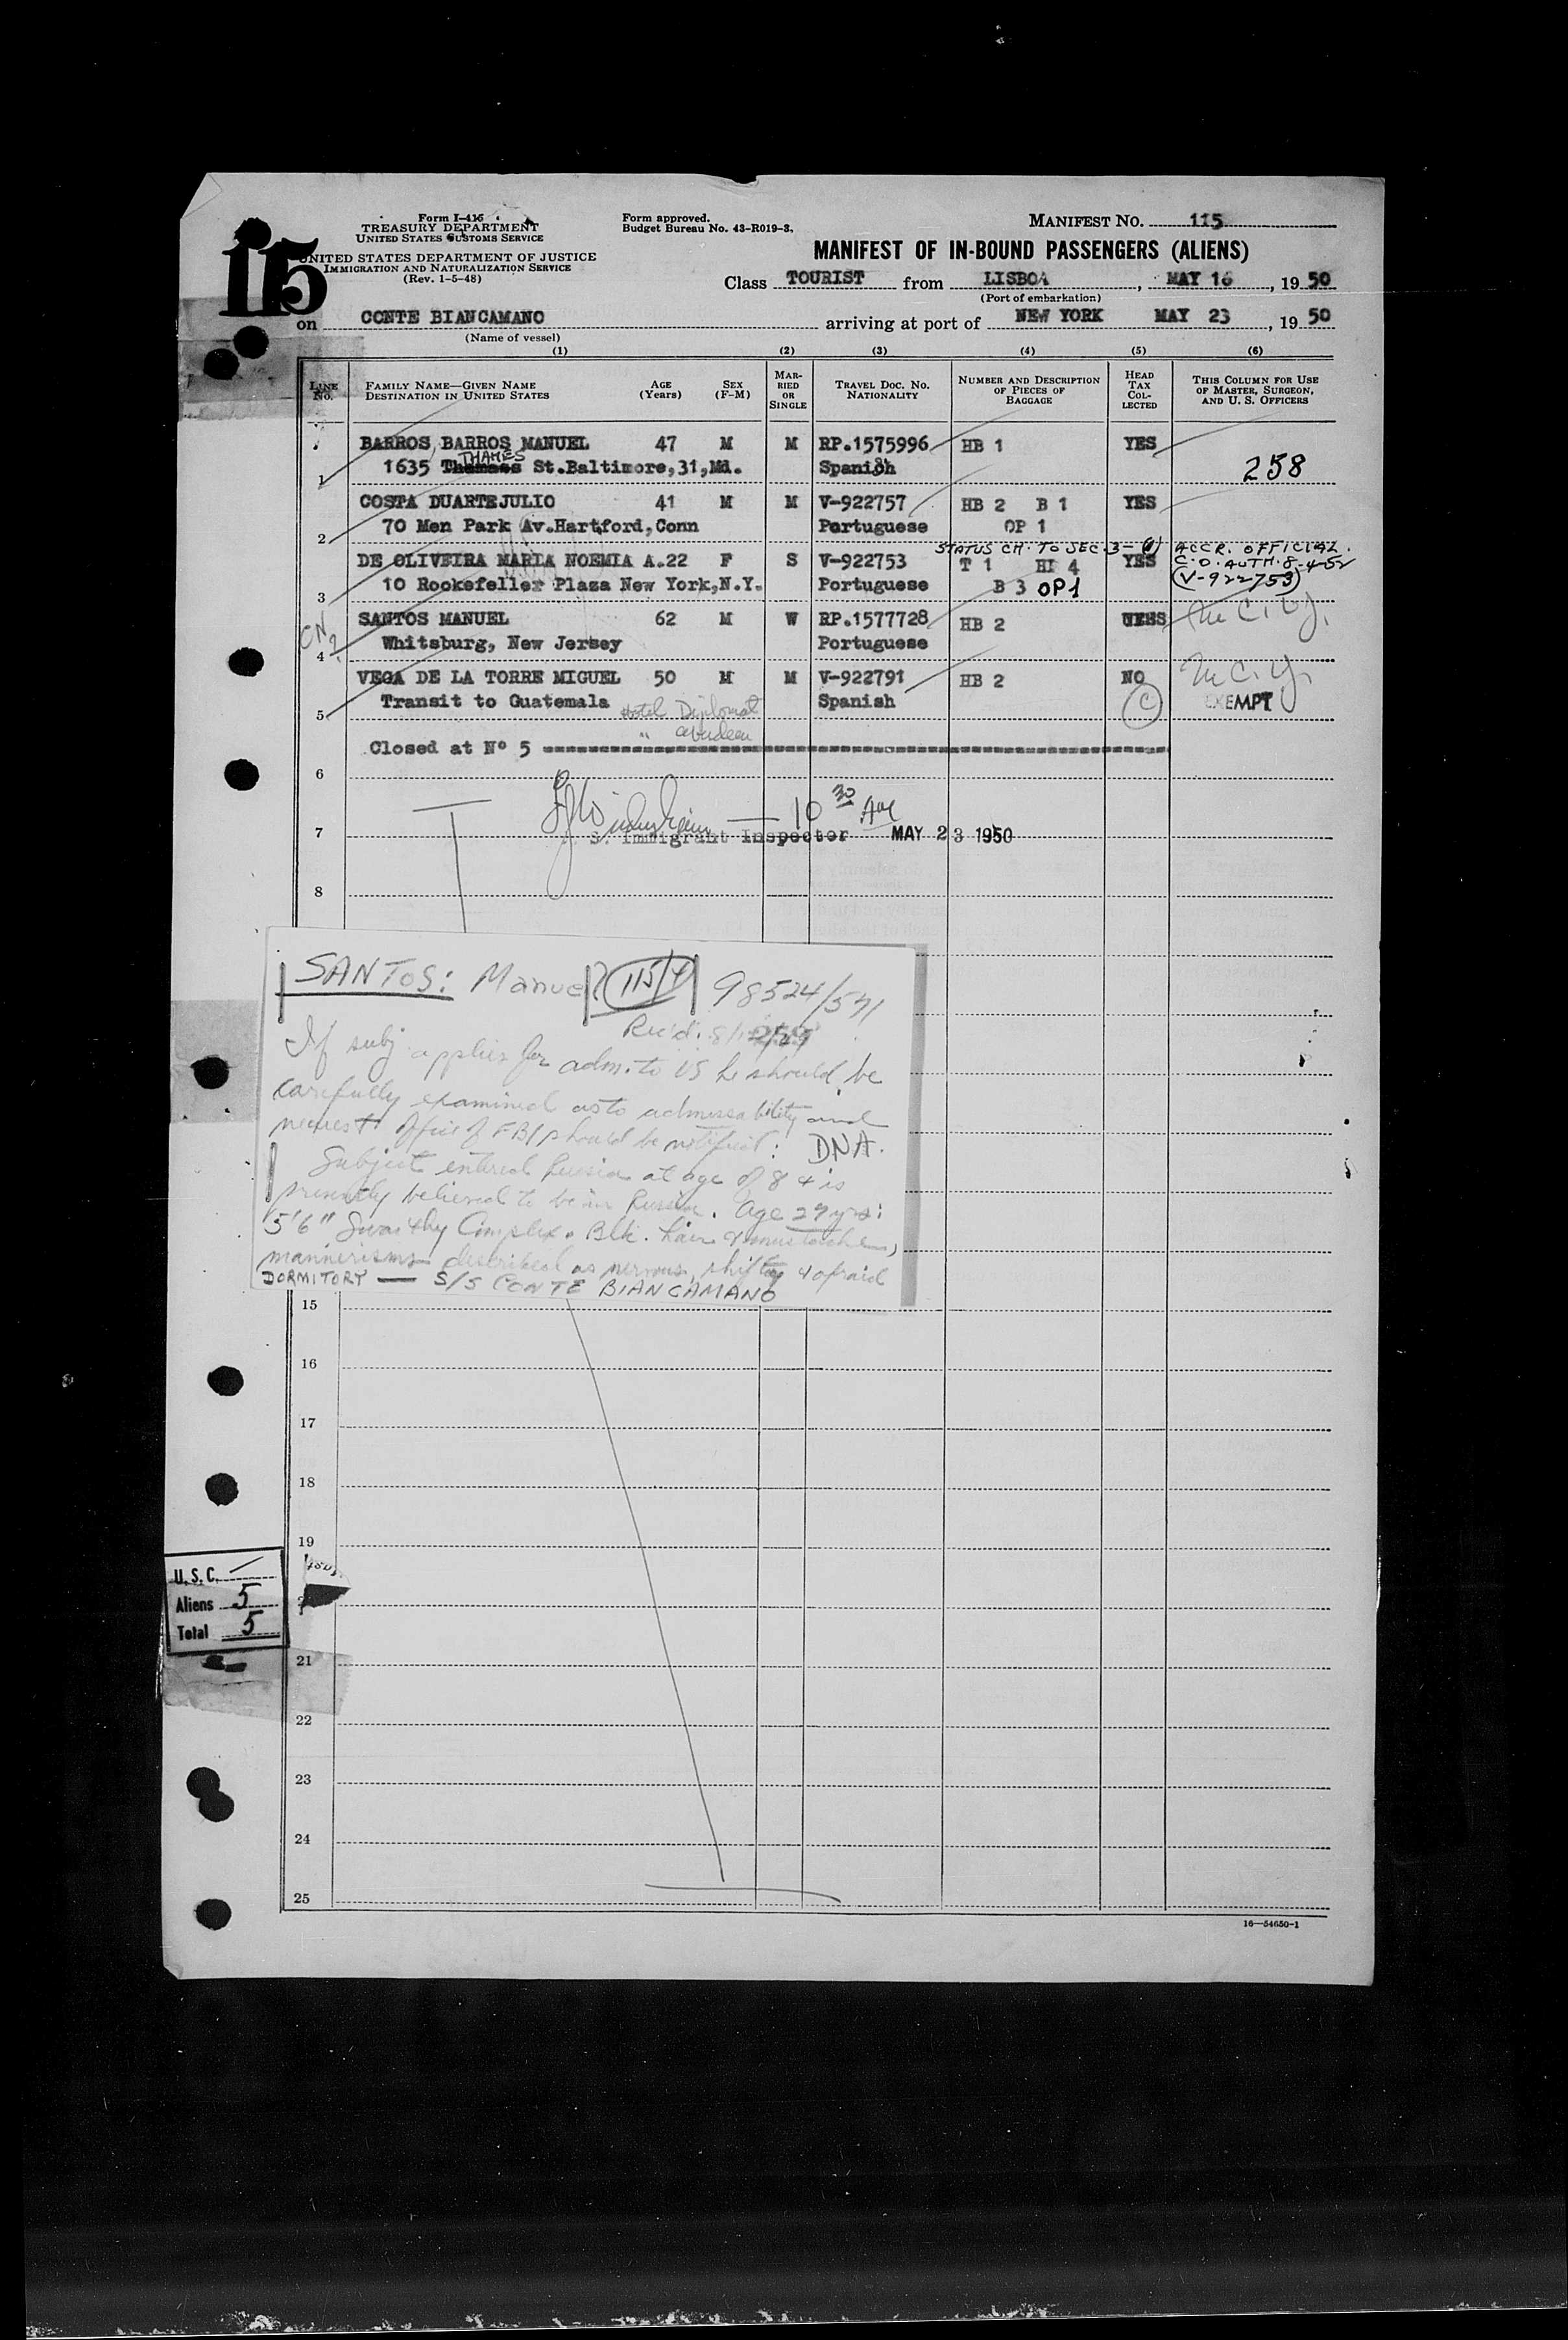 115
Form I-416
TREASURY DEPARTMENT
UNITED STATES CUSTOMS SERVICE
UNITED STATES DEPARTMENT OF JUSTICE
IMMIGRATION AND NATURALIZATION SERVICE
(Rev. 1-5-48)
Form approved.
Budget Bureau No. 43-R019-3.
MANIFEST NO. 115
MANIFEST OF IN-BOUND PASSENGERS (ALIENS)
Class TOURIST from LISBOA, MAY 16, 1950
(Port of embarkation)
on CONTE BIANCAMANO arriving at port of NEW YORK MAY 23, 1950
(Name of vessel)
(1) (2) (3) (4) (5) (6)
LINE No. FAMILY NAME—GIVEN NAME DESTINATION IN UNITED STATES AGE (Years) SEX (F-M) MARRIED OR SINGLE TRAVEL DOC. NO. NATIONALITY NUMBER AND DESCRIPTION OF PIECES OF BAGGAGE HEAD TAX COLLECTED THIS COLUMN FOR USE OF MASTER, SURGEON, AND U. S. OFFICERS
BARROS BARROS MANUEL 47 M M RP.1575996 HB 1 YES
THAMES
1 1635 Thamass St.Baltimore,31,Md. Spanish 258
COSTA DUARTE JULIO 41 M M V-922757 HB 2 B 1 YES
2 70 Men Park Av.Hartford,Conn Portuguese OP 1
STATUS CH. TO SEC. 3-(1) ACCR. OFFICIAL.
DE OLIVEIRA MARIA NOEMIA A.22 F S V-922753 T 1 HI 4 YES C.O. AUTH. 8-4-52
3 10 Rockefeller Plaza New York,N.Y. Portuguese B 3 OP1 (V-922753)
SANTOS MANUEL 62 M W RP.1577728 HB 2
4 Whitsburg, New Jersey Portuguese
VEGA DE LA TORRE MIGUEL 50 M M V-922791 HB 2 NO
5 Transit to Guatemala Hotel Diplomat Spanish C EXEMPT
" Aberdeen
Closed at Nº 5
6
10 30 AM
7 S. Immigrant Inspector MAY 23 1950
8
SANTOS: Manuel 115/4 98524/571
Rec'd.
If subj applies for adm. to US he should be
carefully examined as to admissability and
nearest office of FBI should be notified: DNA.
Subject entered Russia at age of 8 & is
presently believed to be in Russia. Age 27 yrs:
5'6" Swarthy Complex. Blk. hair & mustache,
mannerisms described as nervous, shifty & afraid
DORMITORY — S/S CONTE BIANCAMANO
15
16
17
18
19
U.S.C. —
Aliens 5
Total 5
21
22
23
24
25
16—54650-1